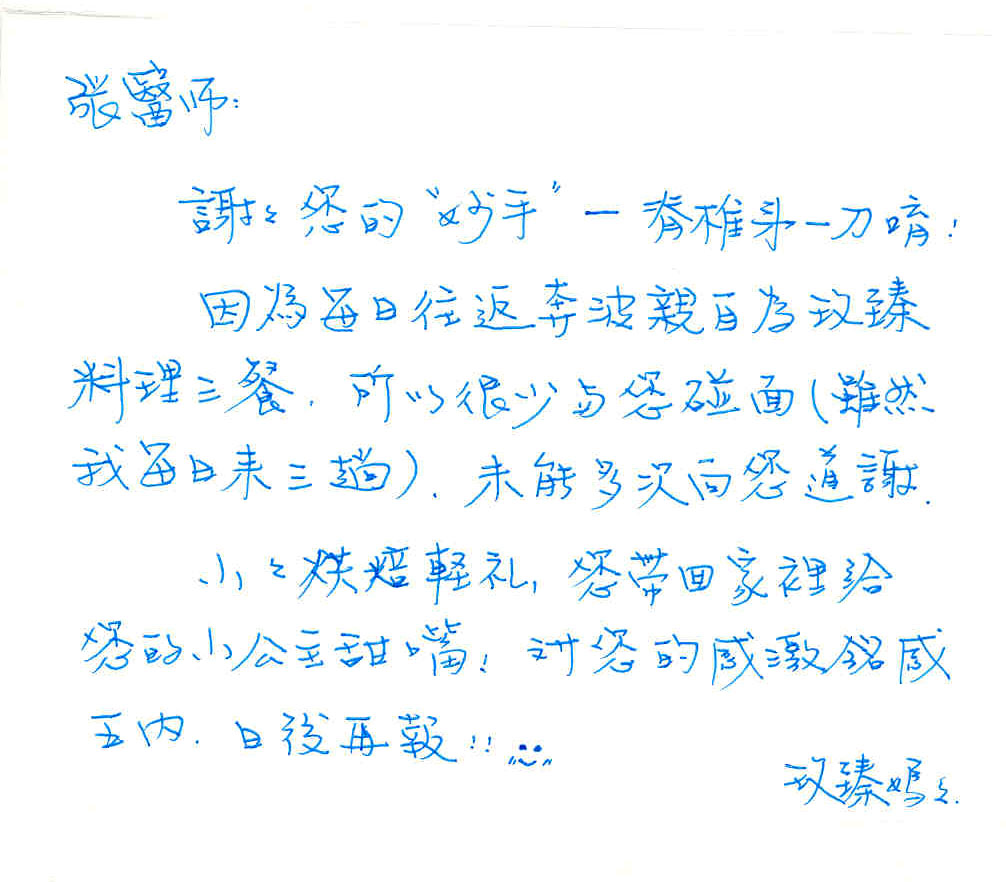 張醫师:
謝々您的“妙手”一脊椎第一刀唷!
因為每日往返奔波親自為玫臻
料理三餐. 所以很少与您碰面(雖然
我每日来三趟). 未能多次向您道謝.
小々烘焙輕礼, 您带回家裡給
您的小公主甜嘴! 対您的感激銘感
五內. 日後再報!!
玫臻媽々.